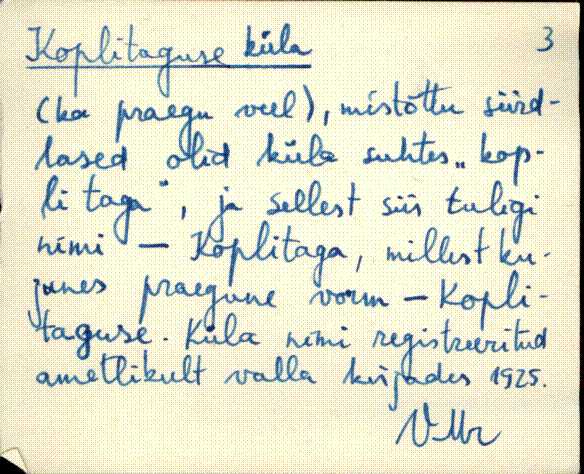 Koplitaguse küla 3
(ka praegu veel), mistõttu siird-
lased olid küla suhtes „kop-
li taga“, ja sellest siis tuligi
nimi – Koplitaga, millest ku-
junes praegune vorm – Kopli-
taguse. Küla nimi registreeritud
ametlikult valla kirjades 1925.